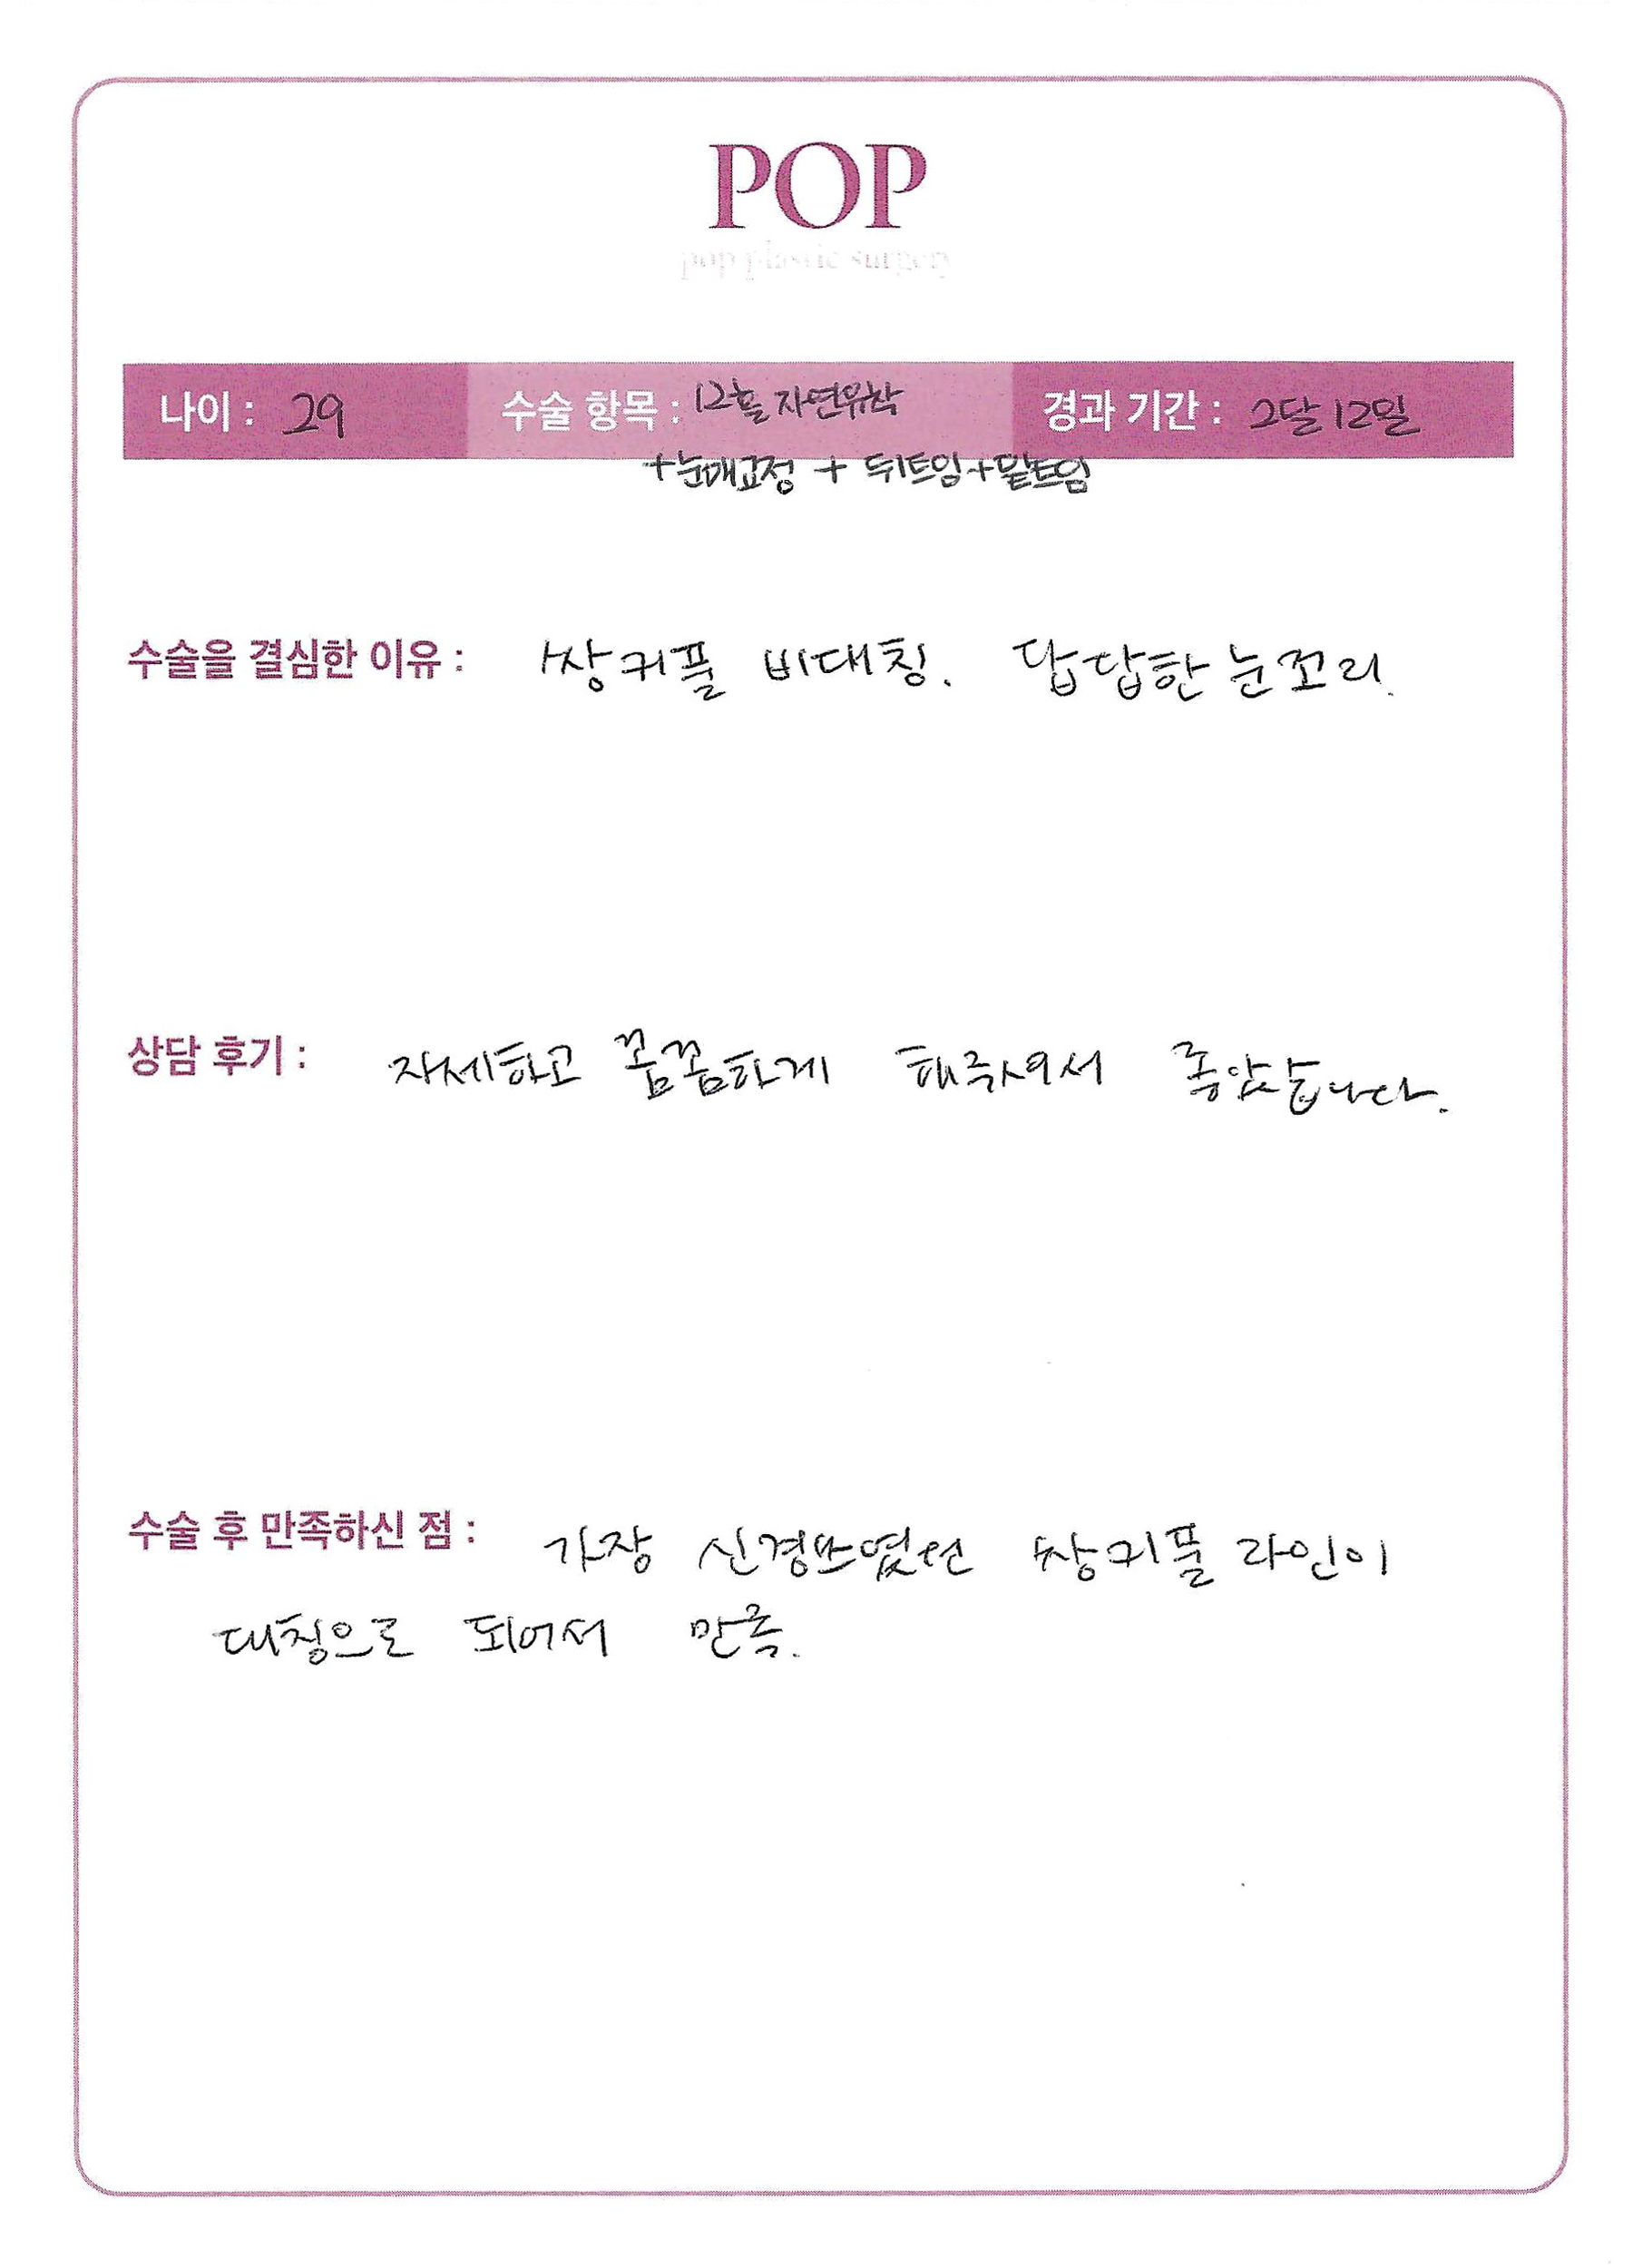 POP
pop plastic surgery
나이 : 29 수술 항목 : 12홀 자연유착 경과 기간 : 2달 12일
+눈매교정 + 뒤트임+밑트임
수술을 결심한 이유 : 쌍커풀 비대칭. 답답한 눈꼬리.
상담 후기 : 자세하고 꼼꼼하게 해주셔서 좋았습니다.
수술 후 만족하신 점 : 가장 신경쓰였던 쌍커풀 라인이
대칭으로 되어서 만족.